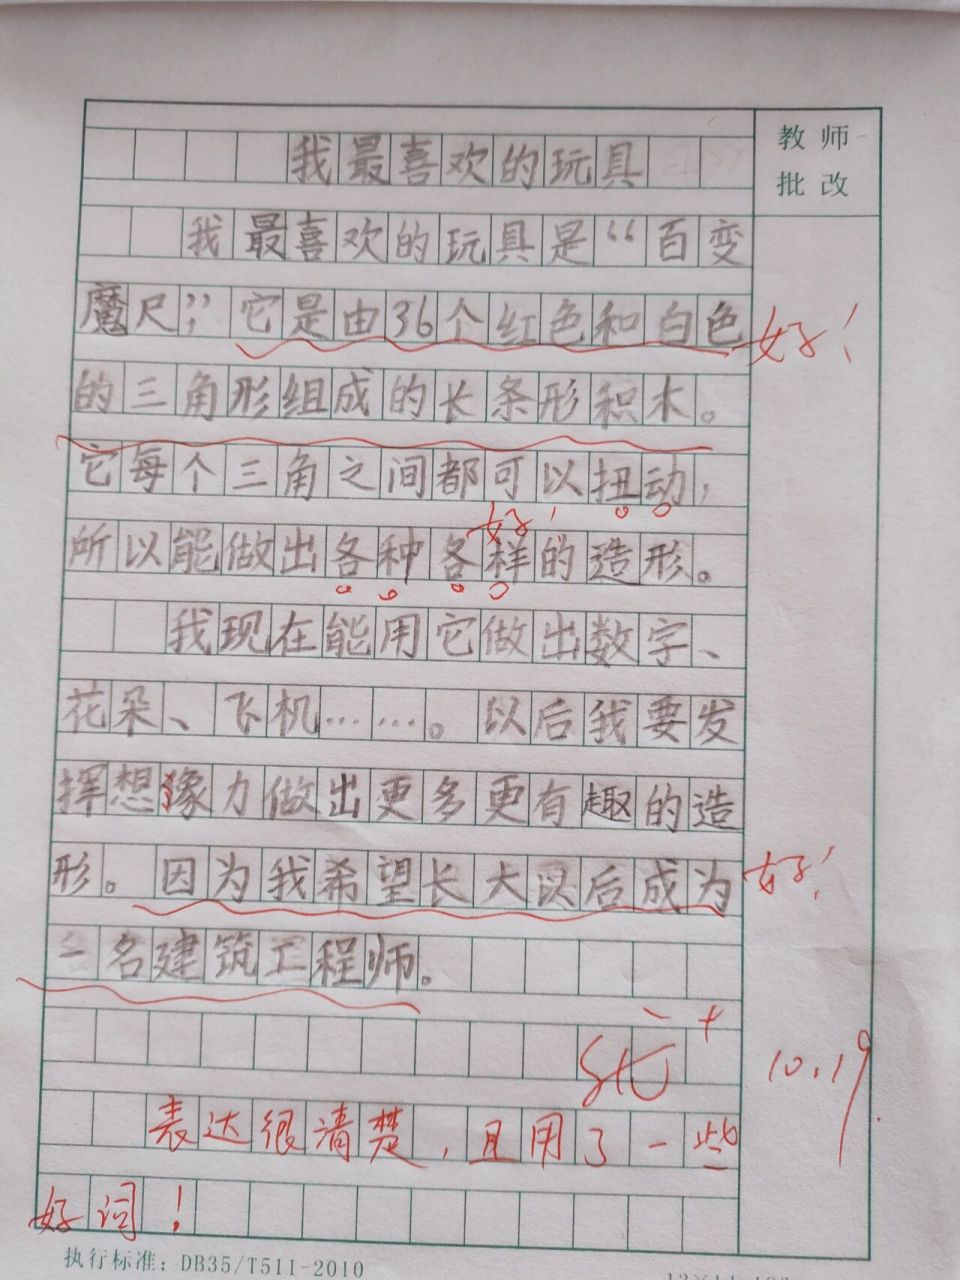 教师
批改
我最喜欢的玩具
我最喜欢的玩具是“百变
魔尺”；它是由36个红色和白色
好！
的三角形组成的长条形积木。
它每个三角之间都可以扭动，
好！
所以能做出各种各样的造形。
我现在能用它做出数字、
花朵、飞机……。以后我要发
挥想像力做出更多更有趣的造
形。因为我希望长大以后成为
好！
一名建筑工程师。
优+
10.19
表达很清楚，且用了一些
好词！
执行标准：DB35/T511-2010